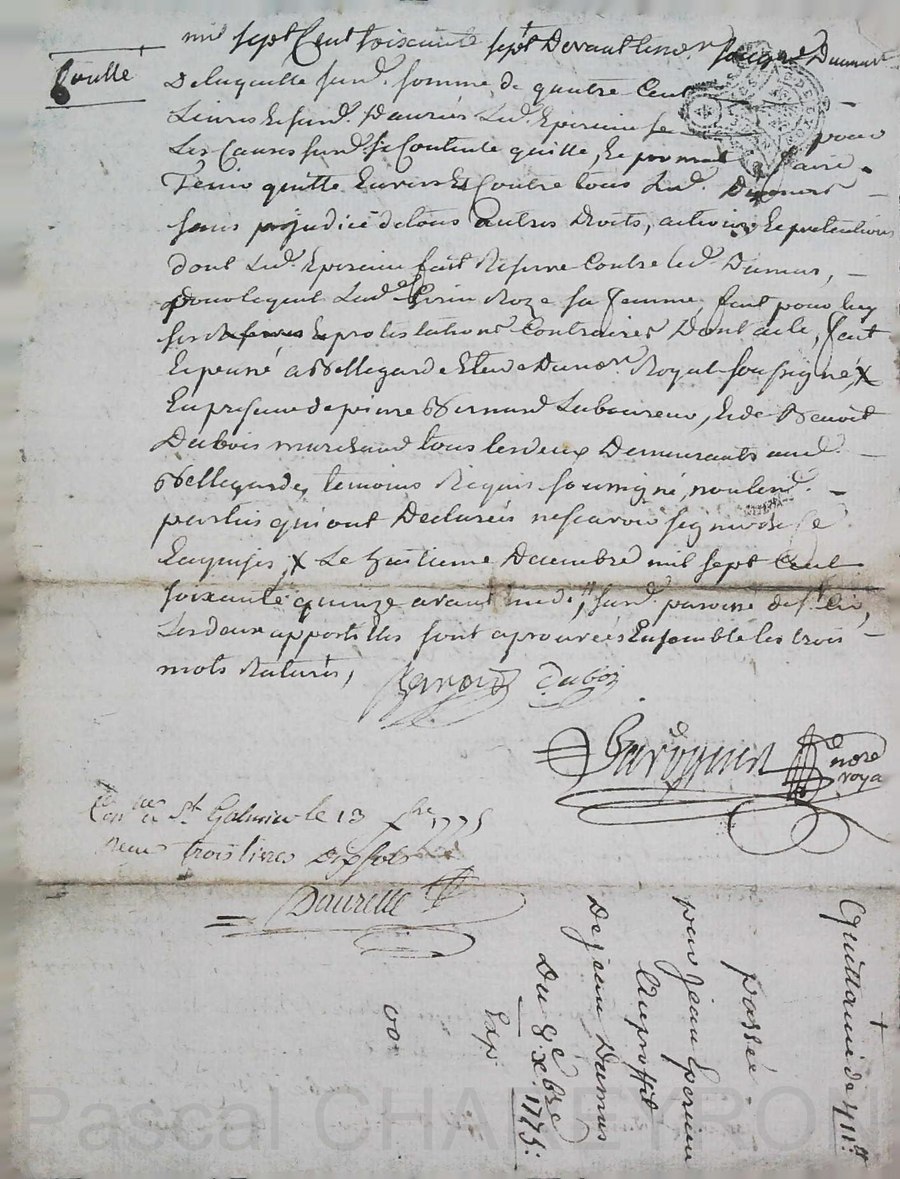 mil sept Cent soixante sept Devant
Coulle
De laquelle susd. somme de quatre Cent
Livres le susd. Led. Epercieu se pour
Les Causes susd. se Contente quitte, et promet faire
Tenir quitte Envers Et Contre tous Led. Dumas
sans préjudice de tous autres Droits, actions et pretentions
dont Led. Epercieu fait Reserve Contre led. Dumas,
pour lequel Lad. Roze sa femme fait pour luy
protestations Contraires Dont acte, fait
Et passé a Bellegarde Etude Du no.re Royal soussigné, X
En presence de pierre Bernard Laboureur, et de Benoit
Dubois marchand tous les deux Demeurants aud.
Bellegarde, temoins Requis soussigné, non lesd.
parties qui ont Declarées ne scavoir signer de ce
Enquises, X Le huitieme Decembre mil sept Cent
soixante quinze avant midi, susd. paroisse de St
Les deux apostilles sont aprouvées Ensemble les trois
mots Raturés,
Benoit Dubois
no.re roya
Con.lé a St Galmier le 13 x.bre 1775
Reçu trois livres Dix sols
Daurelle
Quittance de 411
passée
par jean Epercieu
au proffit
De jean Dumas
Du 8.e x.bre 1775.
Exp.
00
Pascal CHAREYRON